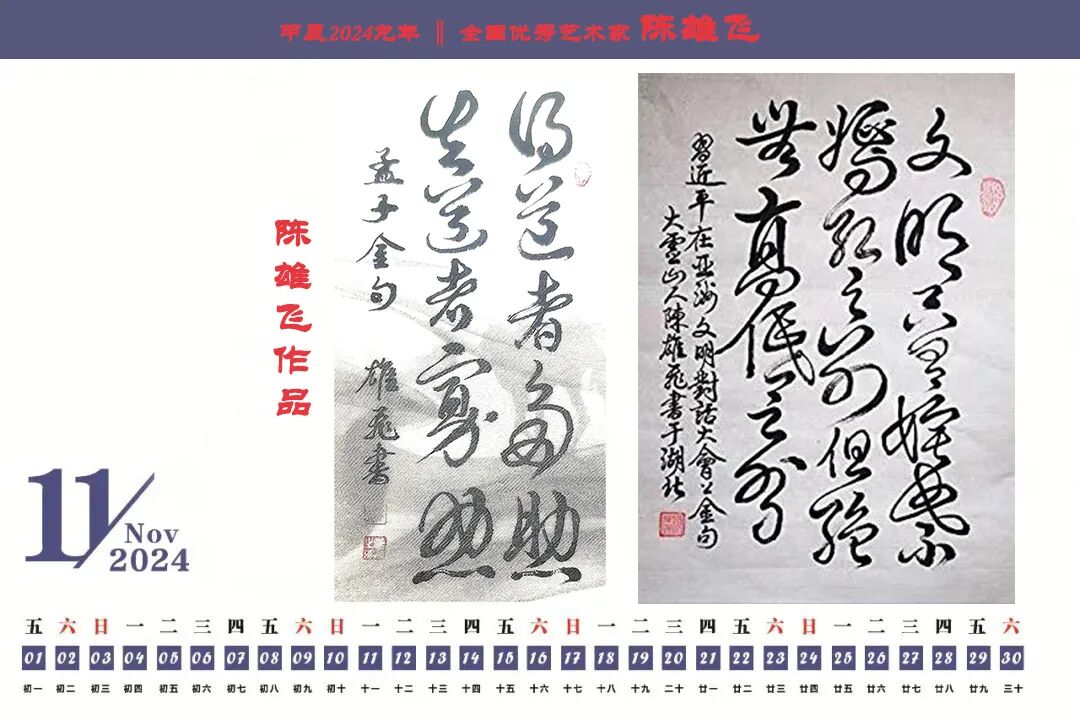 甲辰2024龙年 ‖ 全国优秀艺术家 陈雄飞
得道者多助
失道者寡助
孟子金句
雄飛書
陈雄飞作品
文明只有姹紫
嫣紅之别但絕
無高低之分
習近平在亞洲文明對話大會上金句
大靈山人陳雄飛書于湖北
11/Nov
2024
五 六 日 一 二 三 四 五 六 日 一 二 三 四 五 六 日 一 二 三 四 五 六 日 一 二 三 四 五 六
01 02 03 04 05 06 07 08 09 10 11 12 13 14 15 16 17 18 19 20 21 22 23 24 25 26 27 28 29 30
初一 初二 初三 初四 初五 初六 初七 初八 初九 初十 十一 十二 十三 十四 十五 十六 十七 十八 十九 二十 廿一 廿二 廿三 廿四 廿五 廿六 廿七 廿八 廿九 三十